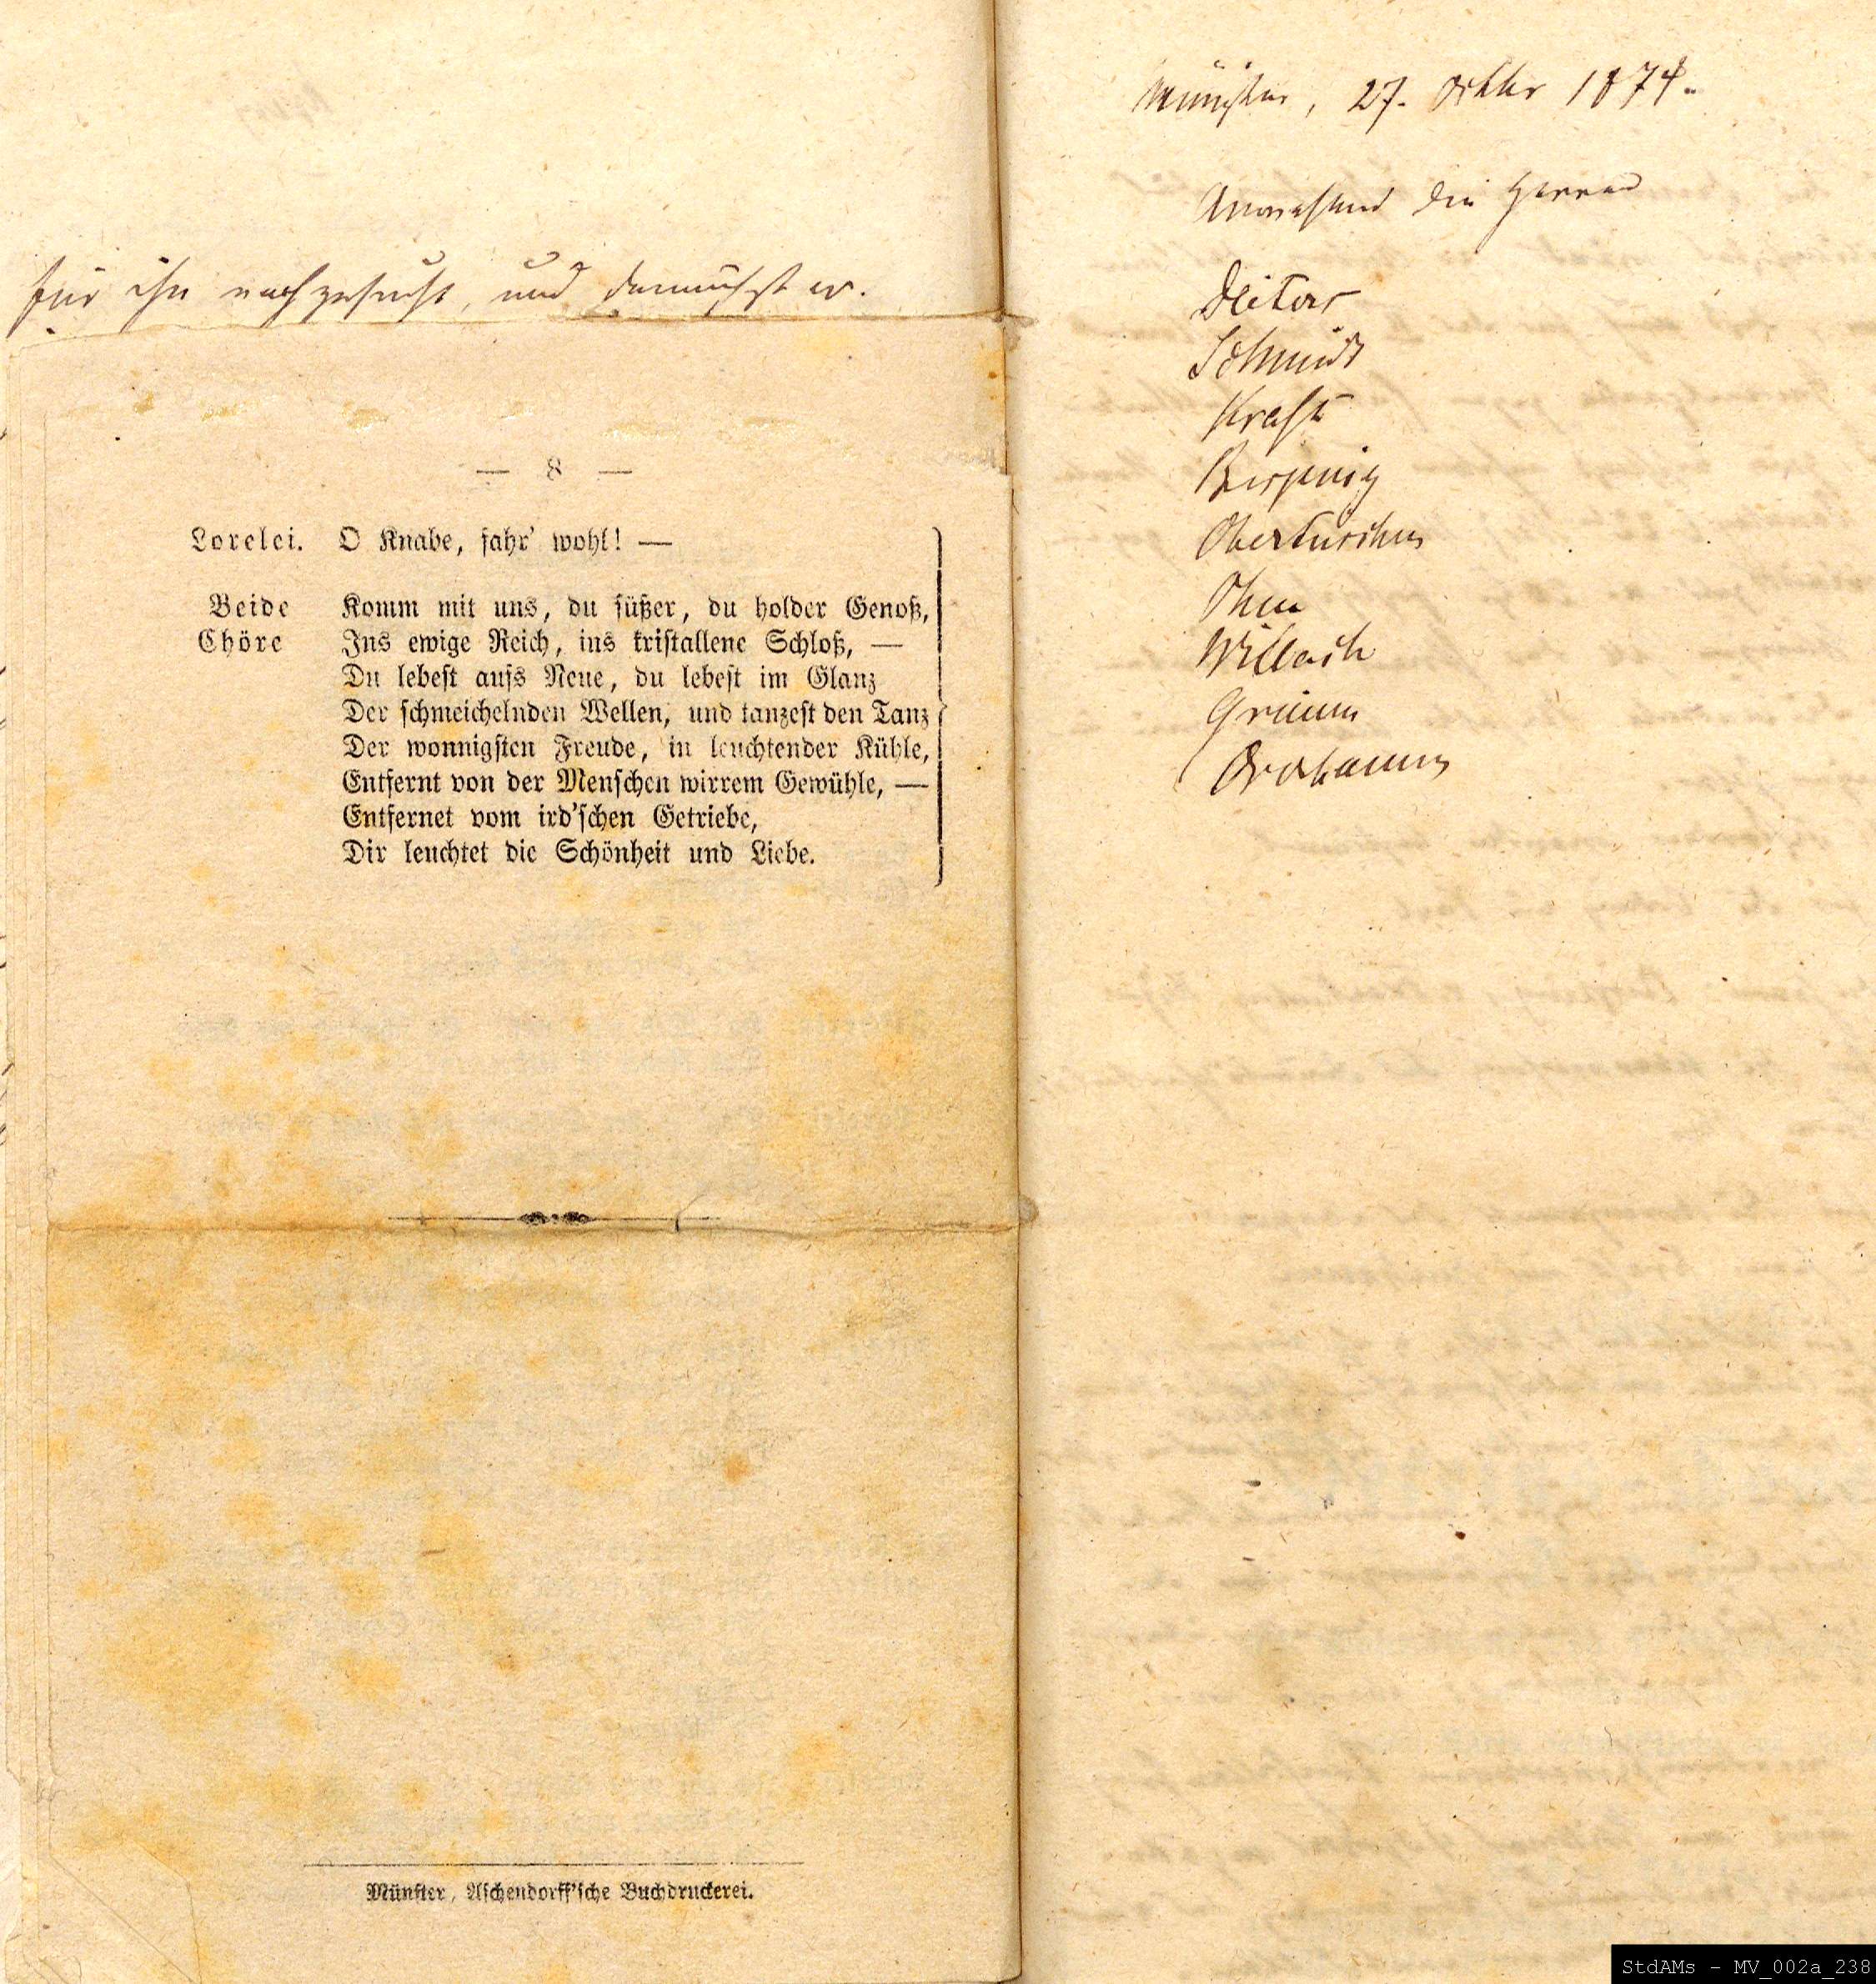 für ihn nachgesucht, und demnächst er.
— 8 —
Lorelei. O Knabe, fahr' wohl! —
Beide Komm mit uns, du süßer, du holder Genoß,
Chöre Ins ewige Reich, ins kristallene Schloß, —
Du lebest aufs Neue, du lebest im Glanz
Der schmeichelnden Wellen, und tanzest den Tanz
Der wonnigsten Freude, in leuchtender Kühle,
Entfernt von der Menschen wirrem Gewühle, —
Entfernet vom ird'schen Getriebe,
Dir leuchtet die Schönheit und Liebe.
Münster, Aschendorff'sche Buchdruckerei.
Münster, 27. Octbr 1874.
Anwesend die Herren
Deiters
Schmidt
Kraft
Bispinig
Obertüschen
Ohm
Willach
Grimm
StdAMs - MV_002a_238